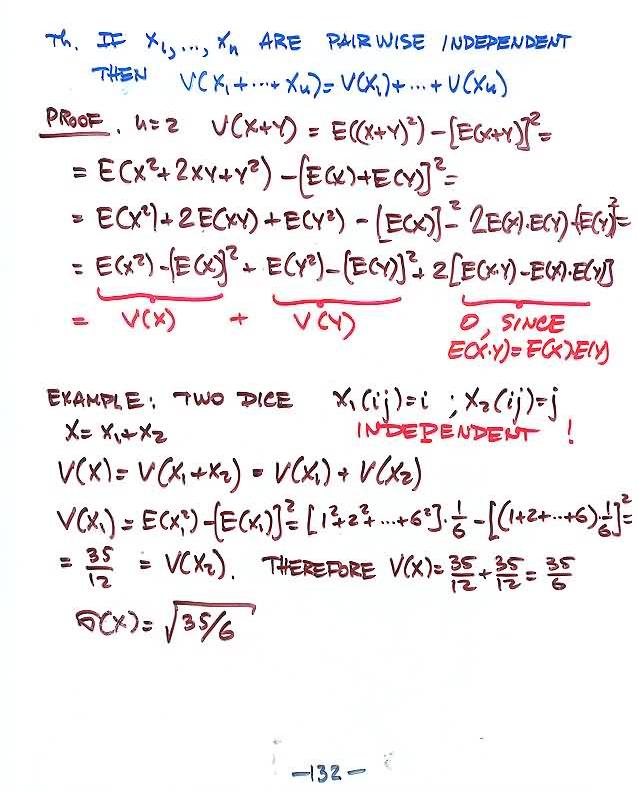 Th. IF X₁,..., Xₙ ARE PAIRWISE INDEPENDENT
THEN V(X₁+...+Xₙ)=V(X₁)+...+V(Xₙ)
PROOF. n=2 V(X+Y) = E((X+Y)²)-[E(X+Y)]²=
= E(X²+2XY+Y²) -[E(X)+E(Y)]²=
= E(X²)+2E(XY)+E(Y²) -[E(X)]²- 2E(X).E(Y)-[E(Y)]²=
= E(X²)-[E(X)]²+ E(Y²)-[E(Y)]²+ 2[E(X.Y)-E(X).E(Y)]
= V(X) + V(Y) 0, SINCE
E(X.Y)=E(X)E(Y)
EXAMPLE: TWO DICE X₁(ij)=i ; X₂(ij)=j
X= X₁+X₂ INDEPENDENT !
V(X)= V(X₁+X₂) = V(X₁)+ V(X₂)
V(X₁)= E(X₁²)-[E(X₁)]²= [1²+2²+...+6²].1/6 -[(1+2+...+6).1/6]²=
= 35/12 = V(X₂). THEREFORE V(X)= 35/12 + 35/12 = 35/6
σ(X)= √35/6
-132-